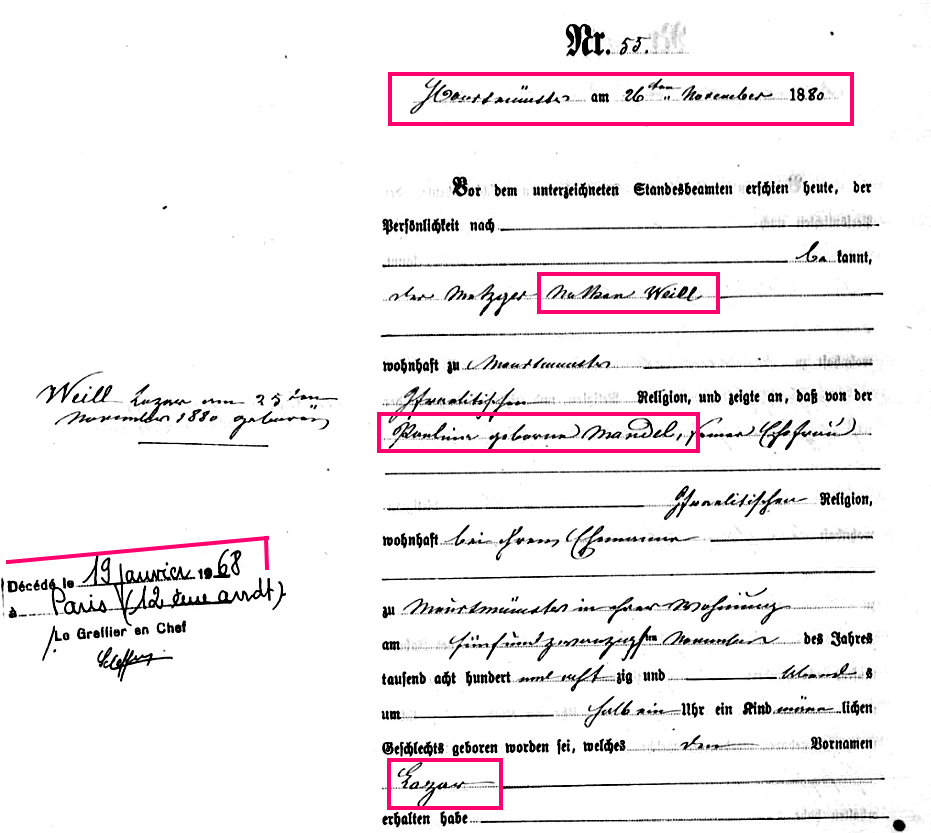 Nr. 55.
Maursmünster am 26ten November 1880
Vor dem unterzeichneten Standesbeamten erschien heute, der
Persönlichkeit nach
be kannt,
der Metzger Nathan Weill
wohnhaft zu Maursmünster
Israelitischen Religion, und zeigte an, daß von der
Pauline geborne Mandel, seiner Ehefrau
Israelitischen Religion,
wohnhaft bei ihrem Ehemanne
zu Maursmünster in ihrer Wohnung
am fünfundzwanzigsten November des Jahres
tausend acht hundert und acht zig und Abend s
um halb ein Uhr ein Kind männ lichen
Geschlechts geboren worden sei, welches den Vornamen
Lazar
erhalten habe
Weill Lazar am 25ten
November 1880 geboren
Décédé le 19 Janvier 1968
à Paris (12ème arrdt)
Le Greffier en Chef